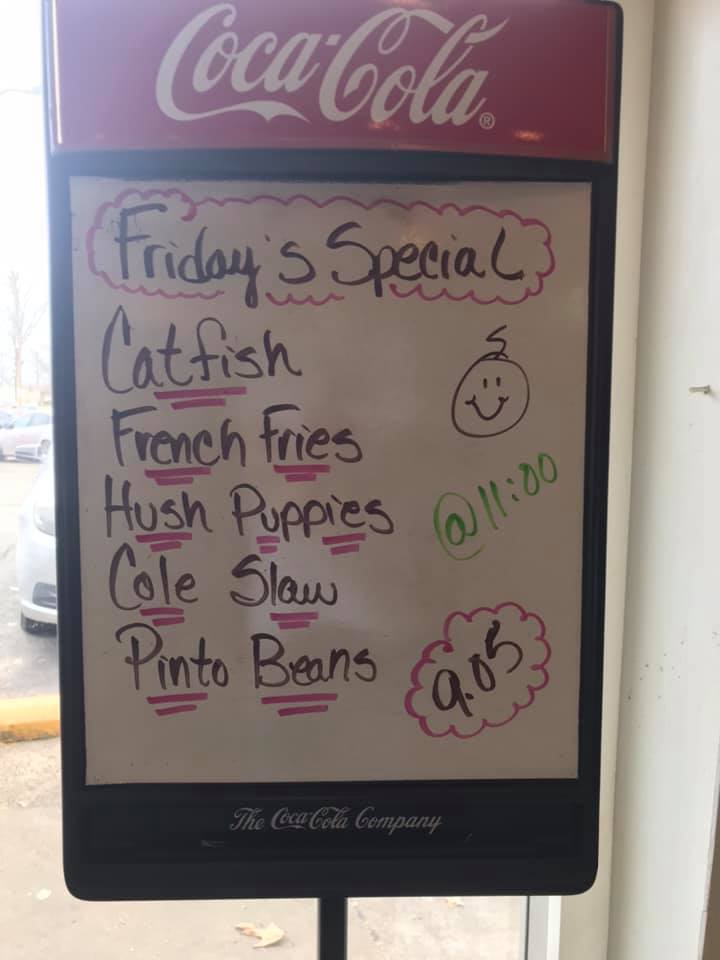 Coca-Cola®
Friday's Special
Catfish
French Fries
Hush Puppies
@11:00
Cole Slaw
Pinto Beans
9.05
The Coca-Cola Company